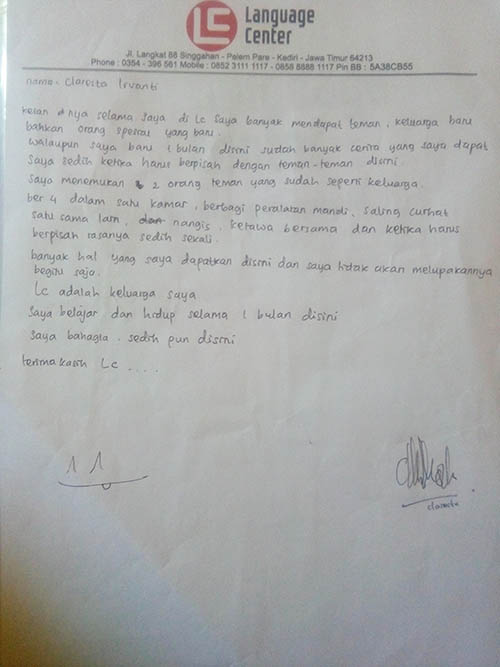 LC Language
Center
Jl. Langkat 88 Singgahan - Pelem Pare - Kediri - Jawa Timur 64213
Phone : 0354 - 396 561 Mobile : 0852 3111 1117 - 0858 8888 1117 Pin BB : 5A38CB55
name : Clarosta Irvanti
kesan nya selama saya di Lc saya banyak mendapat teman, keluarga baru
bahkan orang spesial yang baru.
walaupun saya baru 1 bulan disini sudah banyak cerita yang saya dapat
Saya sedih ketika harus berpisah dengan teman-teman disini.
Saya menemukan 2 orang teman yang sudah seperti keluarga.
ber 4 dalam satu kamar, berbagi peralatan mandi, saling curhat
satu sama lain, nangis, ketawa bersama dan ketika harus
berpisah rasanya sedih sekali.
banyak hal yang saya dapatkan disini dan saya tidak akan melupakannya
begitu saja.
Lc adalah keluarga saya
Saya belajar dan hidup selama 1 bulan disini
Saya bahagia, sedih pun disini
terima kasih Lc ....